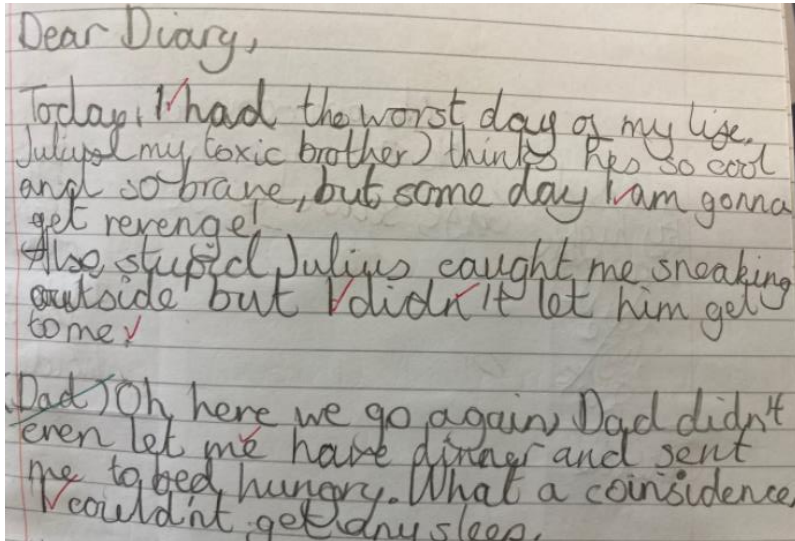 Dear Diary,
Today, I had the worst day of my life.
Julius (my toxic brother) thinks hes so cool
and so brave, but some day I am gonna
get revenge!
Also, stupid Julius caught me sneaking
outside but I didn't let him get
to me.
(Dad) Oh, here we go again, Dad didn't
even let me have dinner and sent
me to bed, hungry. What a coinsidence,
I could'nt get any sleep.